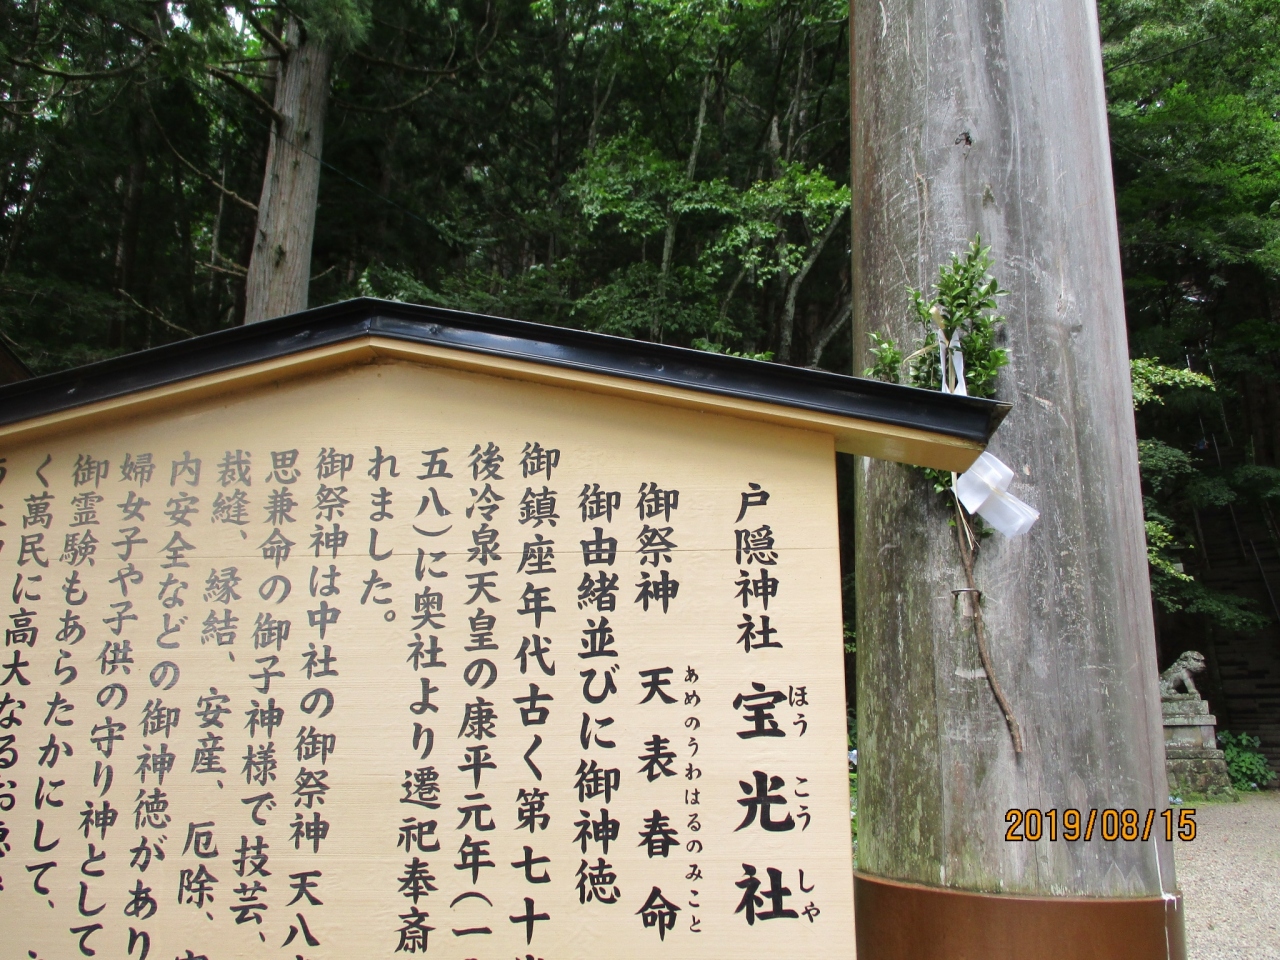 戸隠神社 宝光社
ほう こう しや
御祭神 天表春命
あめのうわはるのみこと
御由緒並びに御神徳
御鎮座年代古く第七十
後冷泉天皇の康平元年(一
五八)に奥社より遷祀奉斎
れました。
御祭神は中社の御祭神 天八
思兼命の御子神様で技芸、
裁縫、縁結、安産、厄除、
内安全などの御神徳があり
婦女子や子供の守り神として
御霊験もあらたかにして、
く萬民に高大なるお
2019/08/15